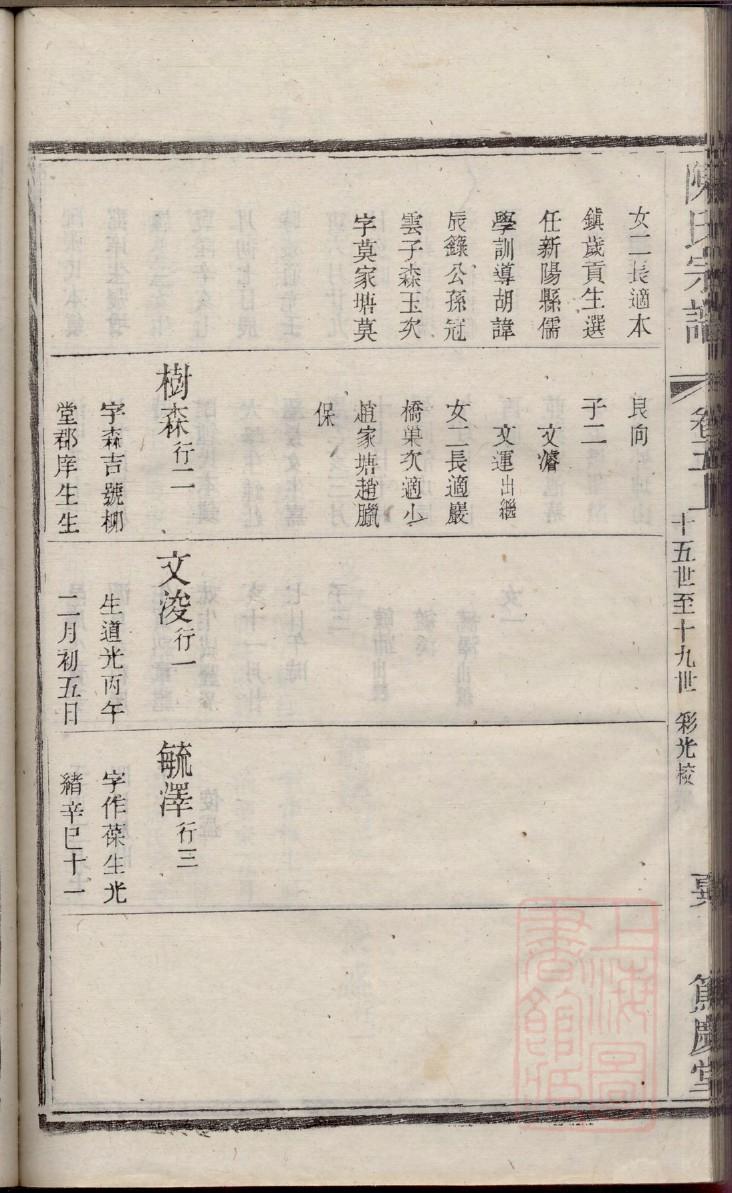 陳氏宗譜
卷二
十五世至十九世 彩光校
篤慶堂
女二長適本
鎮歲貢生選
任新陽縣儒
學訓導胡諱
辰籙公孫冠
雲子森玉次
字莫家塘莫
艮向
子二
文濬
文運出繼
女二長適嚴
橋巢次適少
趙家塘趙臘
保
樹森行二
字森吉號柳
堂郡庠生生
文浚行一
生道光丙午
二月初五日
毓澤行三
字作葆生光
緒辛巳十一
上海圖書館藏